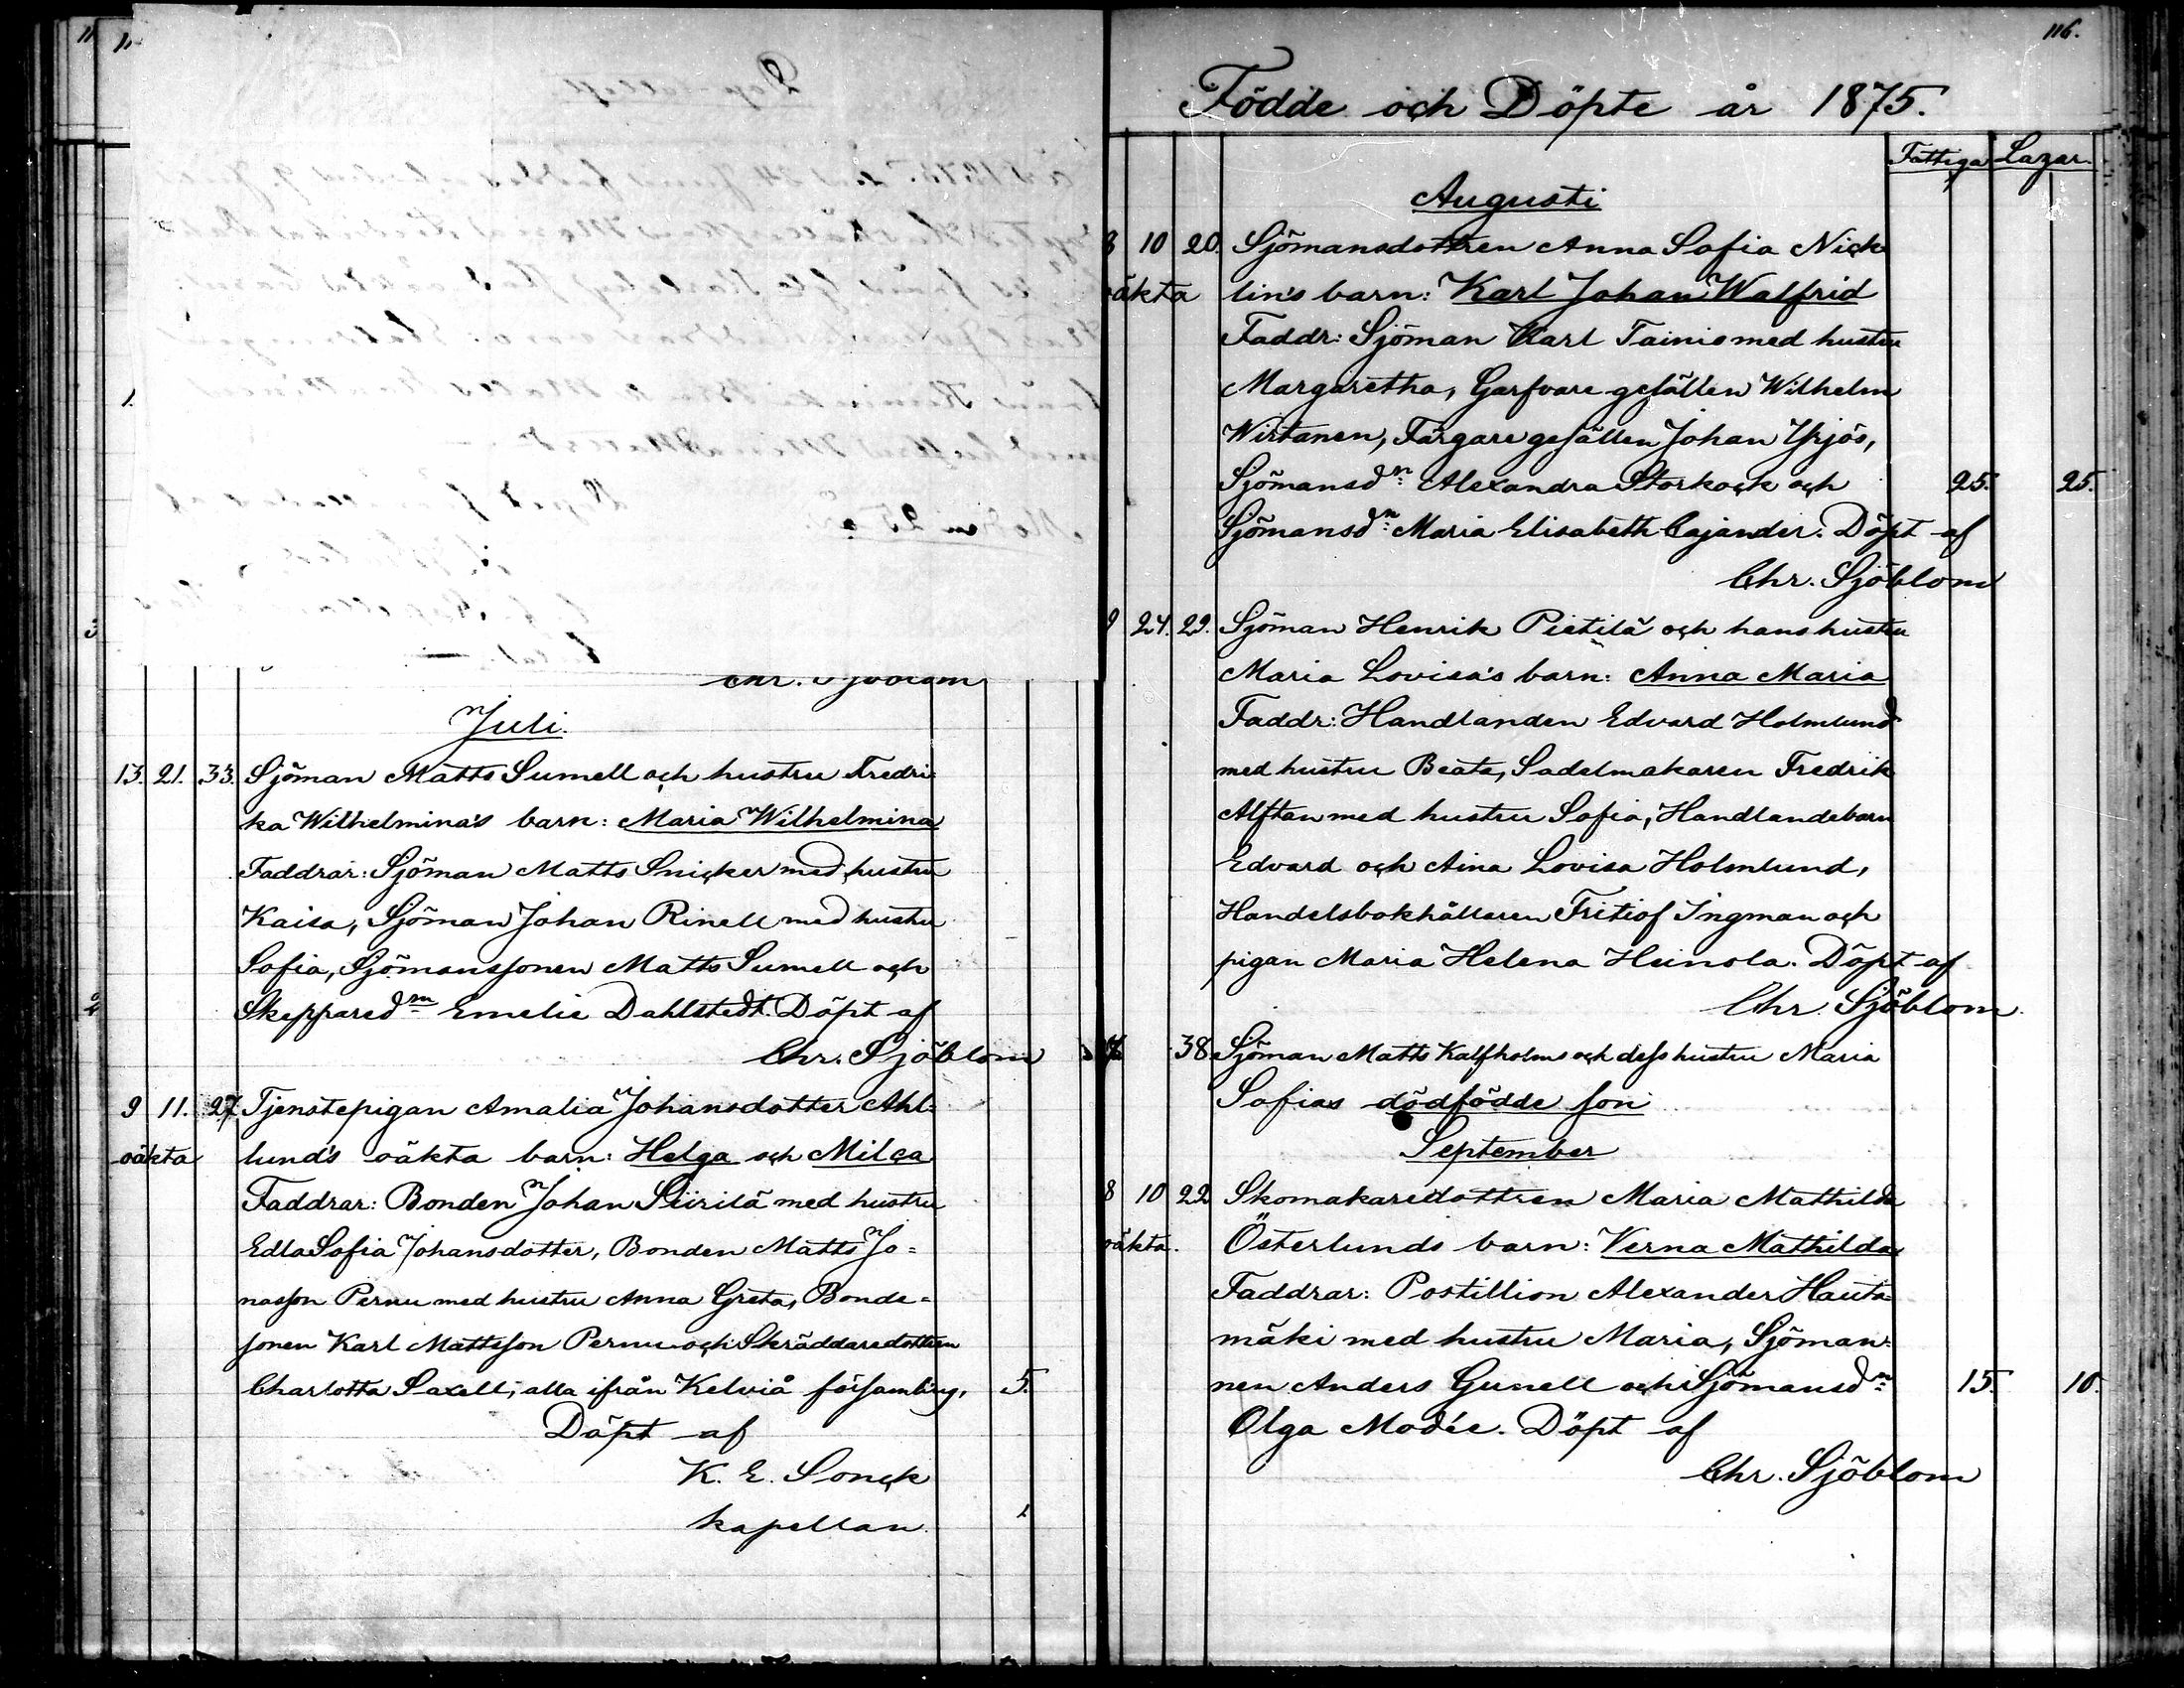 Juli.
13. 21. 33. Sjöman Matts Sumell och hustru Fredri-
ka Wilhelmina's barn: Maria Wilhelmina
Faddrar: Sjöman Matts Snicker med hustru
Kaisa, Sjöman Johan Rinell med hustru
Sofia, Sjömanssonen Matts Sumell och
Skepparedn Emelie Dahlstedt. Döpt af
Chr. Sjöblom
9 11. 27 Tjenstepigan Amalia Johansdotter Ahl-
oäkta lund's oäkta barn: Helga och Milca
Faddrar: Bonden Johan Siirilä med hustru
Edla Sofia Johansdotter, Bonden Matts Jo=
nasson Pernu med hustru Anna Greta, Bonde=
sonen Karl Mattsson Pernu och Skräddaredottren
Charlotta Saxell, alla ifrån Kelviå församling, 5.
Döpt af
K. E. Sonck
kapellan
116.
Födde och Döpte år 1875.
Fattiga Lazar.
Augusti
8 10 20. Sjömansdottren Anna Sofia Nick
oäkta lin's barn: Karl Johan Walfrid
Faddr: Sjöman Karl Tainio med hustru
Margaretha, Garfvare gesällen Wilhelm
Wirtanen, Färgare gesällen Johan Yrjös,
Sjömansdn Alexandra Storkock och 25. 25.
Sjömansdn Maria Elisabeth Cajander. Döpt af
Chr. Sjöblom
9 24. 29. Sjöman Henrik Pietilä och hans hustru
Maria Lovisa's barn: Anna Maria
Faddr: Handlanden Edvard Holmlund
med hustru Beata, Sadelmakaren Fredrik
Alftan med hustru Sofia, Handlandebarn
Edvard och Aina Lovisa Holmlund,
Handelsbokhållaren Fritiof Ingman och
pigan Maria Helena Heinola. Döpt af
Chr. Sjöblom.
38 Sjöman Matts Kalfholms och dess hustru Maria
Sofias dödfödde son
September
8 10 22 Skomakaredottren Maria Mathilda
oäkta. Österlunds barn: Verna Mathilda
Faddrar: Postillion Alexander Hauta=
mäki med hustru Maria, Sjöman=
nen Anders Gunell och Sjömansdn 15. 10.
Olga Modée. Döpt af
Chr. Sjöblom